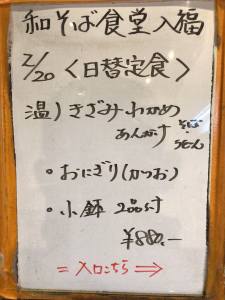 和そば食堂入福
2/20 <日替定食>
温) きざみわかめ
あんかけ そば
うどん
・おにぎり(かつお)
・小鉢 2品付
¥880.-
= 入口こちら ⇒